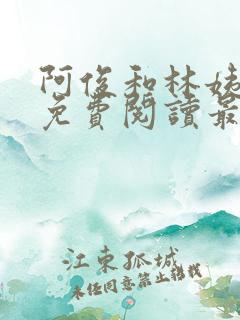 阿俊和林姨
免費閱讀最
江東孤城
未經同意禁止轉載